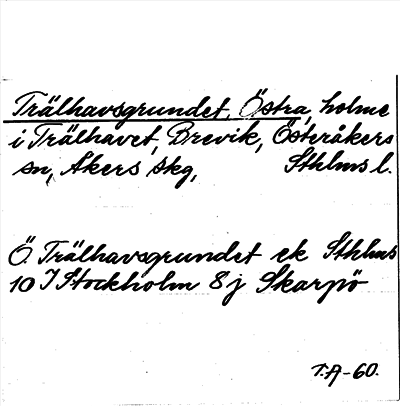 Trälhavsgrundet, Östra, holme
i Trälhavet, Brevik, Österåkers
sn, Åkers skg, Sthlms l.
Ö. Trälhavsgrundet ek Sthlms
10 I Stockholm 8 j Skarpö
T.A-60.